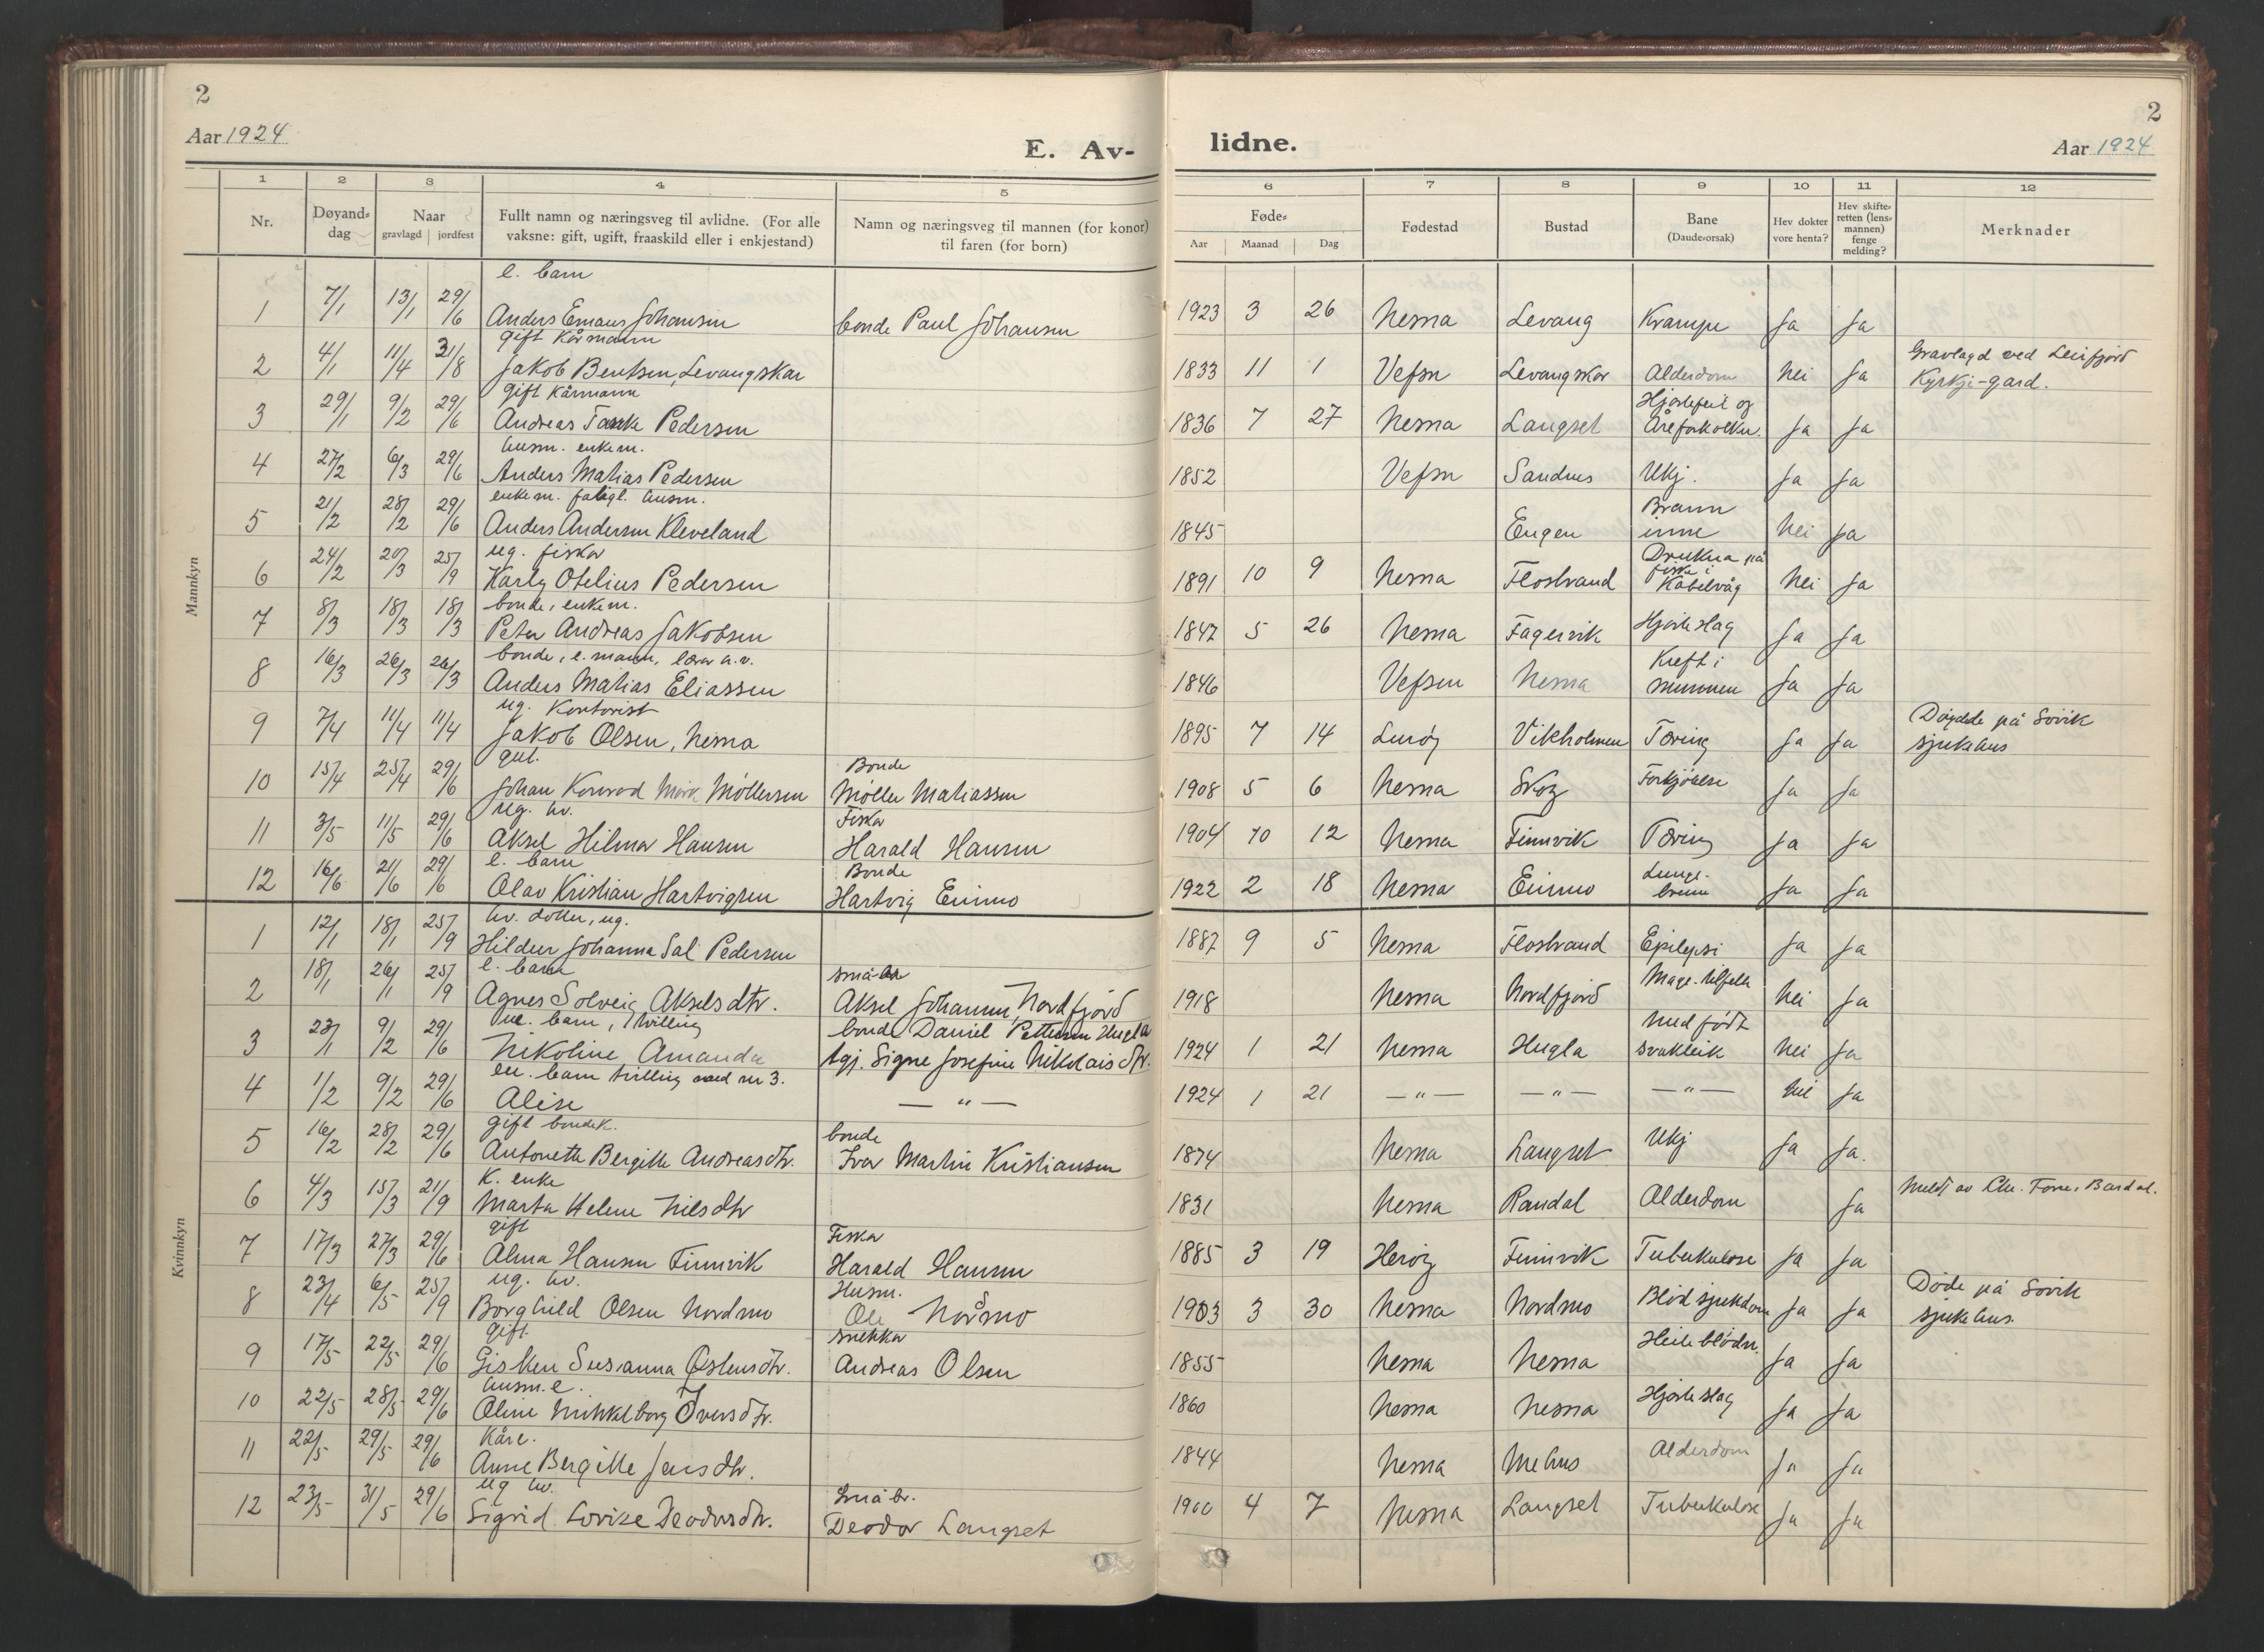 2
2
Aar 1924
E. Av-
lidne.
Aar 1924
1 2 3 4 5
6 7 8 9 10 11 12
Nr.
Døyand-
dag
Naar
gravlagd | jordfest
Fullt namn og næringsveg til avlidne. (For alle
vaksne: gift, ugift, fraaskild eller i enkjestand)
Namn og næringsveg til mannen (for konor)
til faren (for born)
Føde-
Aar Maanad Dag
Fødestad
Bustad
Bane
(Daude-orsak)
Hev dokter
vore henta?
Hev skifte-
retten (lens-
mannen)
fenge
melding?
Merknader
Mannkyn
e. barn
1 7/1 13/1 29/6 Anders Emaus Johansen bonde Paul Johansen 1923 3 26 Nesna Levang Krampe Ja Ja
gift Kårmann
2 4/1 11/4 31/8 Jakob Bentsen, Levangskar 1833 11 1 Vefsn Levangskar Alderdom Nei Ja Gravlagd ved Leirfjord
Kyrkje-gard.
gift Kårmann
Hjartefeil og
3 29/1 9/2 29/6 Andreas Tanke Pedersen 1836 7 27 Nesna Langset Åreforkalkn. Ja Ja
husm. enkem.
4 27/2 6/3 29/6 Anders Matias Pedersen 1852 Vefsn Sandnes Ukj. Ja Ja
enkem. fatigl. husm.
Brann
5 21/2 28/2 29/6 Anders Andersen Kleveland 1845 Engen inne Nei Ja
ug. fiskar
Drukna på
fiske i
6 24/2 20/3 25/9 Karly Otelius Pedersen 1891 10 9 Nesna Flostrand Kabelvåg Nei Ja
bonde, enkem.
7 8/3 18/3 18/3 Peter Andreas Jakobsen 1847 5 26 Nesna Fagervik Hjarteslag Ja Ja
bonde, e. mann, lærar a.v.
Kreft i
8 16/3 26/3 26/3 Anders Matias Eliassen 1846 Vefsen Nesna munnen Ja Ja
ug. Kontorist
9 7/4 11/4 11/4 Jakob Olsen, Nesna 1895 7 14 Lurøy Vikholmen Tæring Ja Ja Døydde på Sövik
sjukehus
gut.
Bonde
10 15/4 25/4 29/6 Johan Konrad Mörk Möllersen Möller Matiassen 1908 5 6 Nesna Skog Forkjölelse Ja Ja
ug. hv.
Fiskar
11 3/5 11/5 29/6 Aksel Hilmar Hansen Harald Hansen 1904 10 12 Nesna Finnvik Tæring Ja Ja
e. barn
Bonde
Lunge-
12 16/6 21/6 29/6 Olav Kristian Hartvigsen Hartvig Einmo 1922 2 18 Nesna Einmo brenn Ja Ja
Kvinnkyn
hv. dotter, ug.
1 12/1 18/1 25/9 Hildur Johanna Sal. Pedersen 1887 9 5 Nesna Flostrand Epilepsi Ja Ja
e. barn
2 18/1 26/1 25/9 Agnes Solveig Akselsdtr. Aksel Johannsen, Nordfjord 1918 Nesna Nordfjord Mage-tilfelle Nei Ja
ue. barn, tvilling
bonde Daniel Pettersen Hugla
Medfödt
3 23/1 9/2 29/6 Nikoline Amanda tgj. Signe Josefine Nikolaisdtr. 1924 1 21 Nesna Hugla svakleik Nei Ja
ue. barn tvilling med nr 3.
4 1/2 9/2 29/6 Alise — " — 1924 1 21 — " — — " — — " — Nei Ja
gift bondek.
bonde
5 16/2 28/2 29/6 Antonette Bergitte Andreasdtr. Ivar Martin Kristiansen 1874 Nesna Langset Ukj Ja Ja.
K. enke
6 4/3 15/3 21/9 Marta Helene Nilsdtr 1831 Nesna Randal Alderdom Ja Meldt av Chr. Forne, Bardal.
gift
Fiskar
7 17/3 27/3 29/6 Alma Hansen Finnvik Harald Hansen 1885 3 19 Heröy Finnvik Tuberkulose Ja Ja
ug. hv.
Husm.
8 23/4 6/5 25/9 Borghild Olsen Nordmo Ole Nordmo 1903 3 30 Nesna Nordmo Blodsjukdom Ja Ja Döde på Sövik
sjukehus.
gift
snekkar
9 17/5 22/5 29/6 Gisken Susanna Östensdtr. Andreas Olsen 1855 Nesna Nesna Heileblödn. Ja Ja
husm. e.
10 22/5 28/5 29/6 Oline Mikkelborg Iversdtr. 1860 Nesna Nesna Hjarteslag Ja Ja
Kåre.
11 22/5 29/5 29/6 Anne Bergitte Jensdtr. 1844 Nesna Mehus Alderdom Ja Ja
ug hv.
Småbr.
12 23/5 31/5 29/6 Sigrid Lovise Deodorsdtr. Deodor Langset 1900 4 7 Nesna Langset Tuberkulose Ja Ja